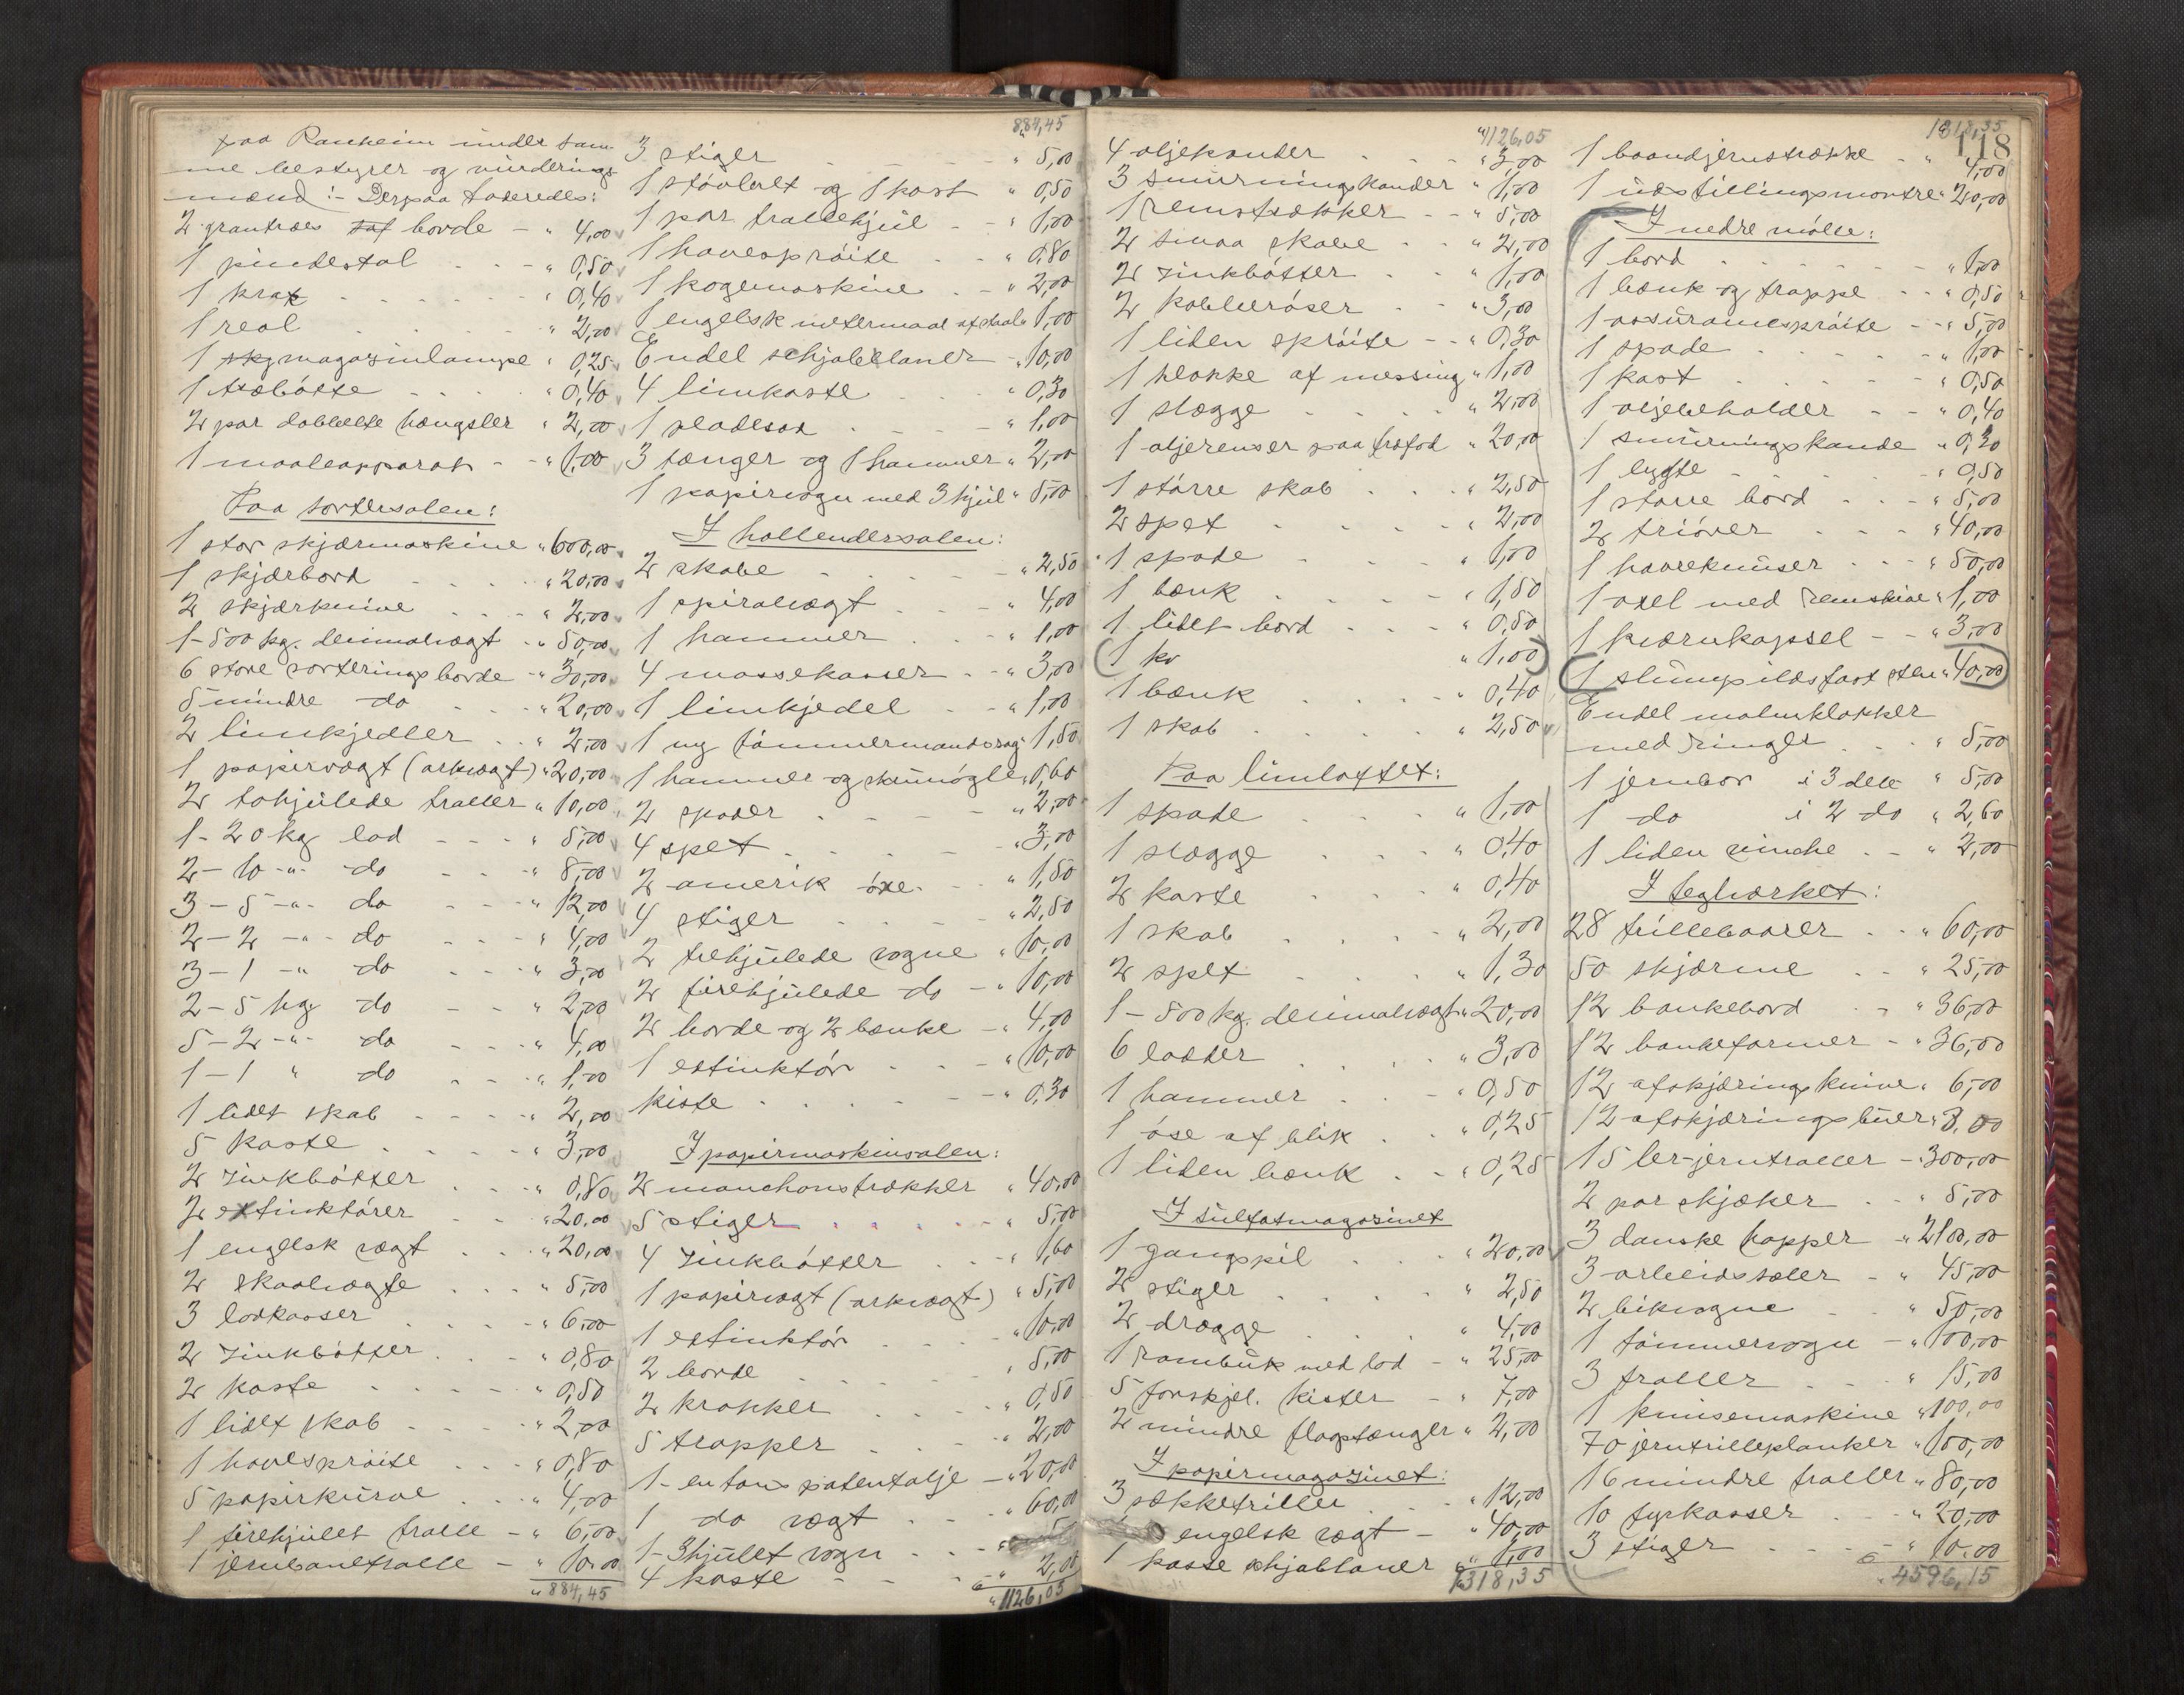 paa Ranheim under sam-
me bestyrer og vurderings-
mænd :- Derpaa taxeredes:
2 grantræes borde - " 4,00
1 pindestol . . - " 0,50
1 krak . . . . " 0,40
1 reol . . . . " 2,00
1 magazinlampe " 0,25
1 træbøtte . . . " 0,40
2 par dobbelte hængsler " 2,00
1 maaleapparat - - " 1,00
Paa sortersalen:
1 stor skjærmaskine " 600,00
1 skjærbord . . . " 20,00
2 skjærknive . . . " 2,00
1-500 kg. decimalvægt . " 50,00
6 store sorteringsborde - " 30,00
5 mindre do . . . " 20,00
2 limkjedler . . " 2,00
1 papirvægt (arkvægt) " 20,00
2 tohjulede traller " 10,00
1-20 kg lod - - - " 5,00
2-10 -"- do - - - " 8,00
3-5 -"- do - - - " 12,00
2-2 -"- do - - - " 4,00
3-1 -" do - - - " 3,00
2-5 hg do - - " 2,00
5-2 -"- do - - - " 4,00
1-1 " do - - - " 1,00
1 lidet skab - - - - " 2,00
5 koste . . . . " 3,00
2 zinkbøtter . . . " 0,80
2 extinktører . . . " 20,00
1 engelsk vægt . . . " 20,00
2 skaalvægte . . . " 5,00
3 lodkasser . . . . " 6,00
2 zinkbøtter . . . " 0,80
2 koste . . . . . " 0,50
1 lidet skab . . . . " 2,00
1 havesprøite . . . " 0,80
5 papirkurve . . . " 4,00
1 firehjulet tralle - " 6,00
1 jernbanetralle - " 10,00
" 884,45
884,45
3 stiger - - - - " 5,00
1 støvbret og 1 kost " 0,50
1 par trallehjul - - " 1,00
1 havesprøite - - " 0,80
1 kogemaskine . - " 2,00
1 engelsk metermaal af staal " 1,00
Endel schjablaner - " 10,00
4 limkoste . . . " 0,30
1 pladesax . - - - " 1,00
3 tænger og 1 hammer " 2,00
1 papirvogn med 3 hjul " 5,00
I hollendersalen:
2 skabe - - - - - " 2,50
1 spiralvægt . . - " 4,00
1 hammer . . - " 1,00
4 massekasser - - " 3,00
1 limkjedel . . - " 1,00
1 ny tømmermandssag " 1,50
1 hammer og skruenøgle " 0,60
2 spader . - - - " 2,00
4 spet . . - - - " 3,00
2 amerik øxe . - - " 1,50
4 stiger . . . . " 2,50
2 trehjulede vogne " 10,00
2 firehjulede do - " 10,00
2 borde og 2 bænke - " 4,00
1 extinktør . . - " 10,00
kiste . . . . - - " 0,30
I papirmaskinsalen:
2 manchonstrækker " 40,00
5 stiger . . . . " 5,00
4 zinkbøtter . . " 1,60
1 papirvægt (arkvægt) " 5,00
1 extinktør . . . " 10,00
2 borde . . . . " 5,00
2 krakker . . . " 0,50
5 trapper . . . " 2,00
1-en tons patenttalje - " 20,00
1 do vægt . . . " 60,00
1-3hjulet vogn . . . "
4 koste - - - " 2,00
" 1126,05
" 1126,05
4 oljekander . . . " 3,00
3 smurningskander " 1,00
1 remstrækker - - " 5,00
2 smaa skabe . . " 2,00
2 zinkbøtter . . " 1,00
2 kobberøser . . " 3,00
1 liden sprøite - - " 0,30
1 klokke af messing " 1,00
1 slægge . . . . " 2,00
1 oljerenser paa træfod " 20,00
1 større skab . . . " 2,50
2 spet . . . . " 2,00
1 spade . . . . " 1,00
1 bænk . . . . " 1,50
1 lidet bord . . . " 0,50
(1 ko " 1,00)
1 bænk . . . . " 0,40
1 skab . . . . " 2,50
Paa limloftet:
1 spade . . . " 1,00
1 slægge . . . " 0,40
2 koste . . . " 0,40
1 skab . . . . " 2,00
2 spet . . . . " 1,30
1-500 kg. decimalvægt " 20,00
6 lodder . . . . " 3,00
1 hammer . . - " 0,50
1 øse af blik . . " 0,25
1 liden bænk . - " 0,25
I sulfatmagazinet
1 gangspil . . . " 20,00
2 stiger . . . . " 2,50
2 drægge . . . . " 4,00
1 rambuk med lod - " 25,00
5 forskjel. kister - " 7,00
2 mindre flagstænger " 2,00
I papirmagazinet:
3 sækketriller . . . " 12,00
engelsk vægt - " 40,00
1 kasse schjablaner " 1,00
1318,35
1318,35
118
1 baandjernstrække - " 4,00
1 udstillingsmontre " 20,00
I nedre mølle:
1 bord . . . . . " 1,00
1 bænk og trappe - - " 0,50
1 assurancesprøite - - " 5,00
1 spade . . . . . " 1,00
1 kost . . . . . " 0,50
1 oljebeholder - - " 0,40
1 smurningskande " 0,30
1 lygte - . . . " 0,50
1 større bord . . . " 5,00
2 triører . . . " 40,00
1 havreknuser . . . " 50,00
1 axel med remskive " 1,00
1 kværnkapsel - - " 3,00
(1 slump ildsfast sten " 40,00)
Endel malmklokker
med ringer . . . " 5,00
1 jernbor i 3 dele " 5,00
1 do i 2 do " 2,60
1 liden vinche . - " 2,00
I teglværket:
28 trillebaarer . . " 60,00
50 skjærme . . " 25,00
12 bankebord . - " 36,00
12 bankeformer - " 36,00
12 afskjæringsknive " 6,00
12 afskjæringsbuer " 3,00
15 ler-jerntraller - " 300,00
2 par skjæker . . " 5,00
3 danske hopper - " 2100,00
3 arbeidssæler - " 45,00
2 bikvogne . . " 50,00
1 tømmervogn - " 100,00
3 traller . . . " 15,00
1 knusemaskine " 100,00
70 jerntrilleplanker " 100,00
16 mindre traller " 80,00
10 fyrkasser . . . " 20,00
3 stiger - - - - " 10,00
" 4596,15